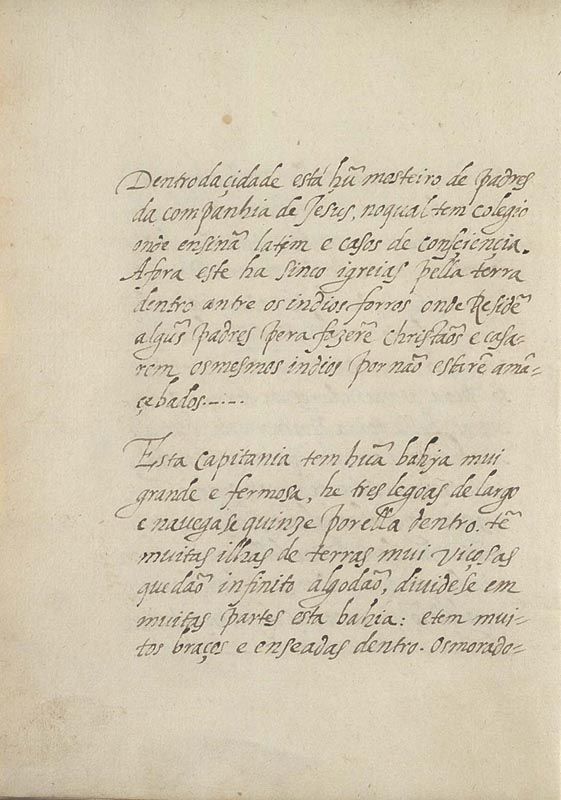 Dentro da çidade está hũ mosteiro de padres
da companhia de Jesus, no qual tem colegio
onde ensinã latim e casos de consciençia.
Afora este ha sinco igreias pella terra
dentro antre os indios forros onde Residẽ
algũs padres pera fazerẽ christaõs e casa-
rem os mesmos indios por não estarẽ amã-
çebados.---
Esta Capitania tem huã bahya mui
grande e fermosa, he tres legoas de largo
e navegase quinze por ella dentro. tẽ
muitas ilhas de terras mui viçosas
que daõ infinito algodaõ, dividese em
muitas partes esta bahia: e tem mui-
tos braços e enseadas dentro. Os morado-